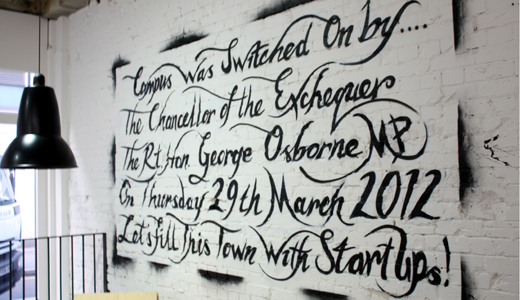 Campus Was Switched On by....
The Chancellor of the Exchequer
The Rt. Hon. George Osborne MP
On Thursday 29th March 2012
Let's fill This Town With StartUps!